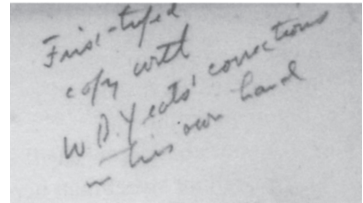 First-typed
copy with
W B. Yeats' corrections
in his own hand